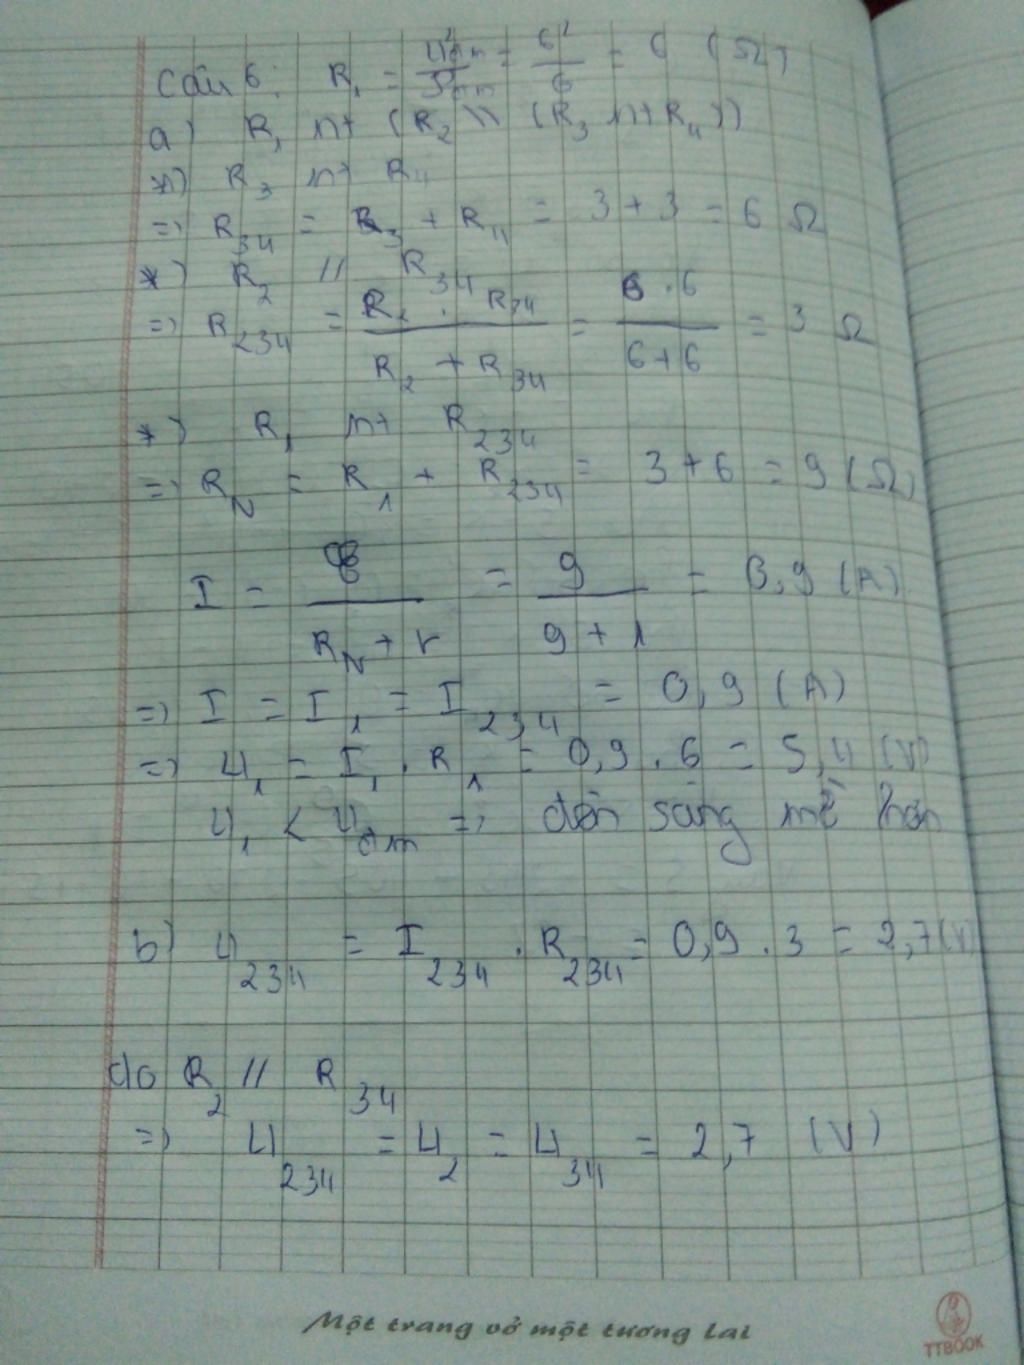 Câu 6: R₁ = U²đm / Pđm = 6² / 6 = 6 (Ω)
a) R₁ nt (R₂ // (R₃ nt R₄))
*) R₃ nt R₄
=> R₃₄ = R₃ + R₄ = 3 + 3 = 6 Ω
*) R₂ // R₃₄
=> R₂₃₄ = R₂ . R₃₄ / R₂ + R₃₄ = 6 . 6 / 6 + 6 = 3 Ω
*) R₁ nt R₂₃₄
=> R_N = R₁ + R₂₃₄ = 3 + 6 = 9 (Ω)
I = ℰ / R_N + r = 9 / 9 + 1 = 0,9 (A)
=> I = I₁ = I₂₃₄ = 0,9 (A)
=> U₁ = I₁ . R₁ = 0,9 . 6 = 5,4 (V)
U₁ < Uđm => đèn sáng mờ hơn
b) U₂₃₄ = I₂₃₄ . R₂₃₄ = 0,9 . 3 = 2,7 (V)
do R₂ // R₃₄
=> U₂₃₄ = U₂ = U₃₄ = 2,7 (V)
Một trang vở một tương lai
TTBOOK